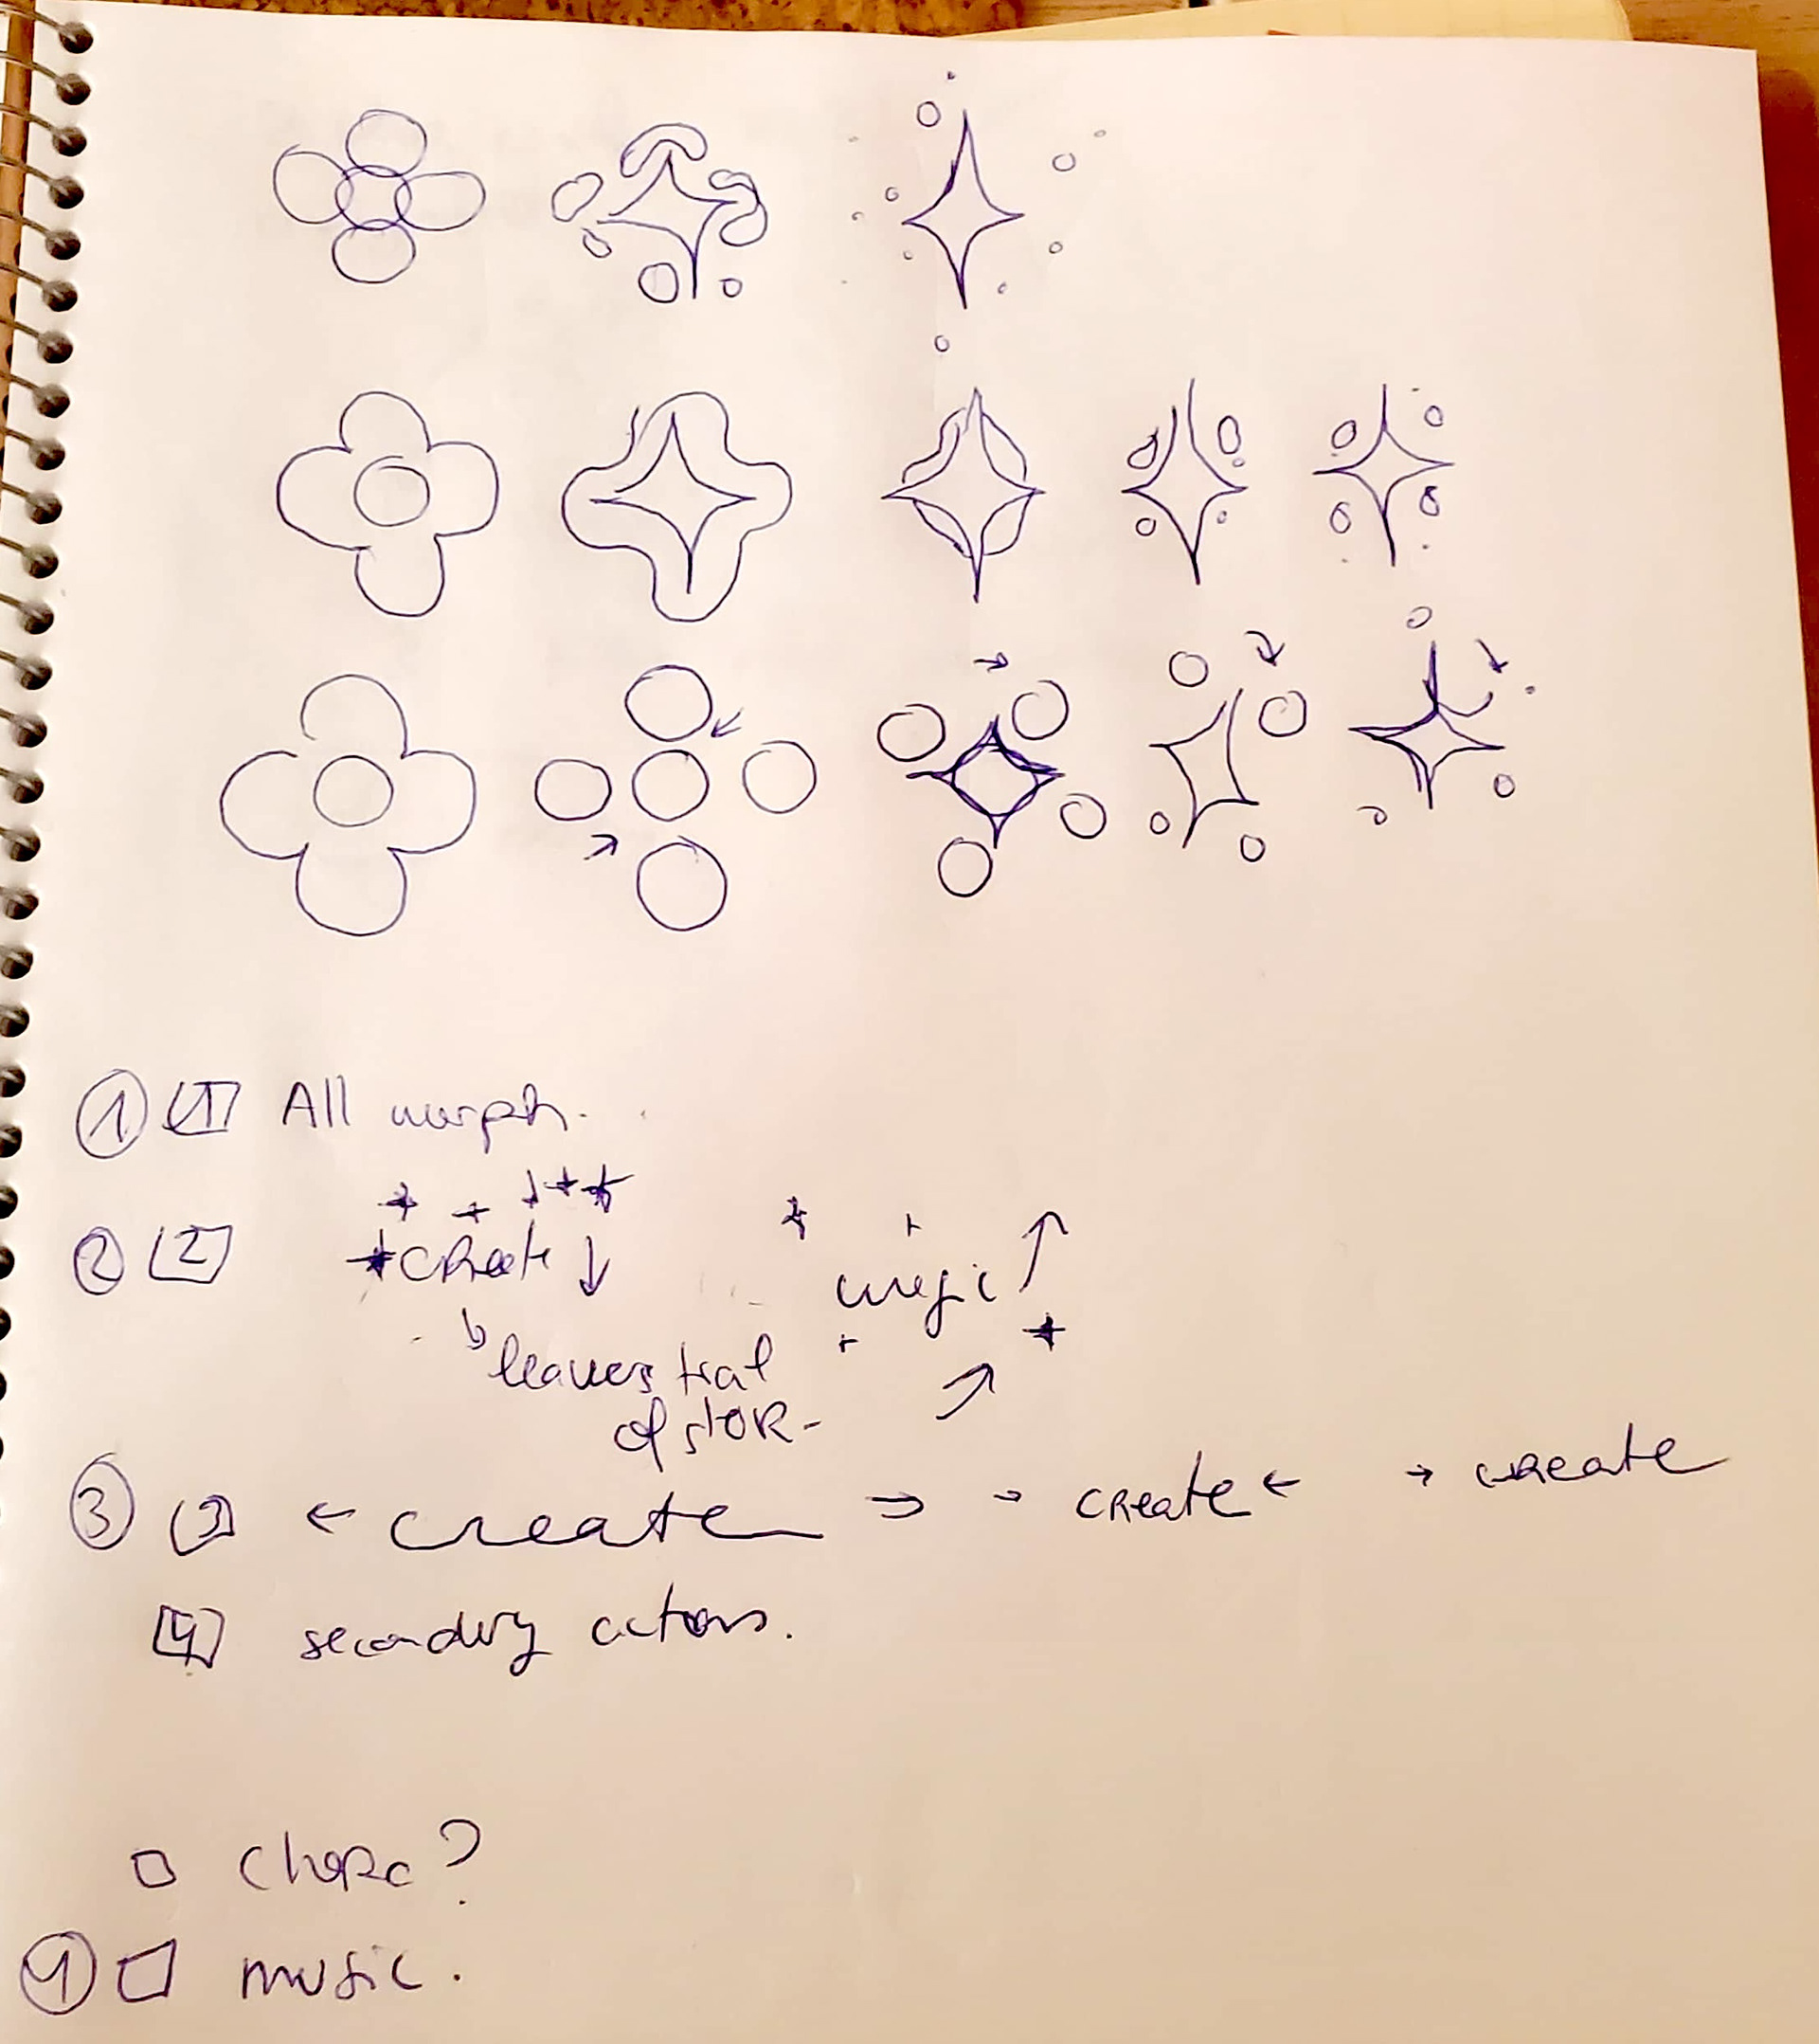 ① 1 All morph.
② 2 create ↓ magic ↑
↳ leaves trail
of star-
③ 3 ← create → → create ← → create
4 secondary actions.
□ Charac?
④ □ music.